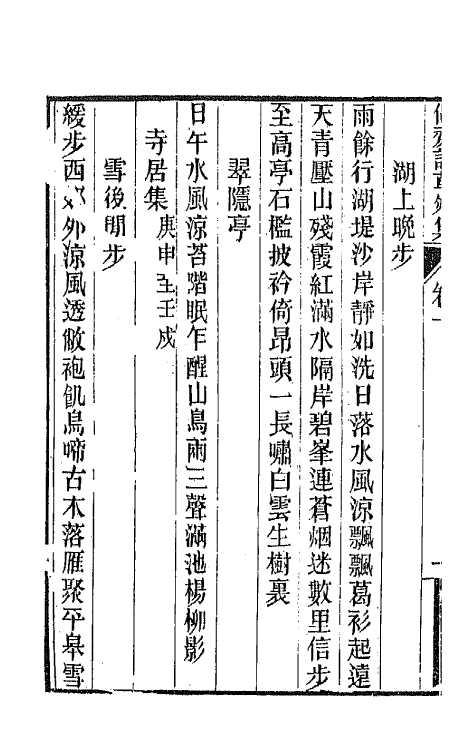 湖上晚步
雨餘行湖堤沙岸靜如洗日落水風涼飄飄葛衫起遠
天青壓山殘霞紅滿水隔岸碧峯連蒼烟迷數里信步
至高亭石檻披衿倚昂頭一長嘯白雲生樹裏
翠隱亭
日午水風涼苔階眠乍醒山鳥雨三聲滿池楊柳影
寺居集庚申至壬戌
雪後閒步
緩步西郊外涼風透敝袍飢鳥啼古木落雁聚平皋雪